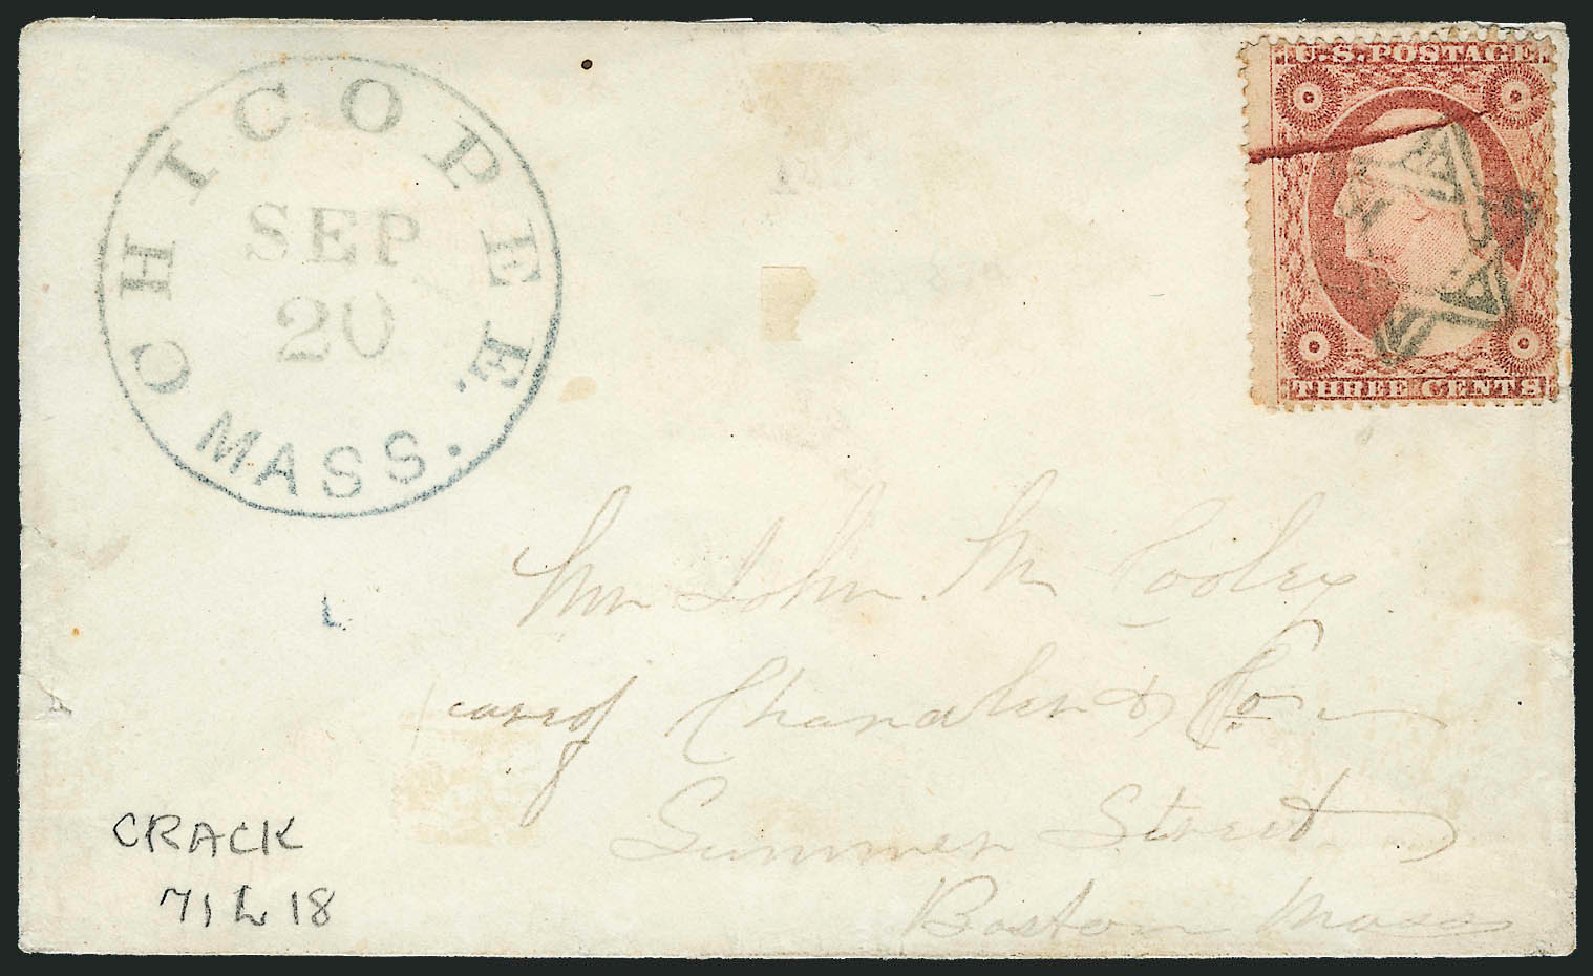 CHICOPEE.
SEP
20
MASS.
U.S. POSTAGE
THREE CENTS
Mr John M Cooley
care of Chandler & Co
Summer Street
Boston Mass
CRACK
71 L 18